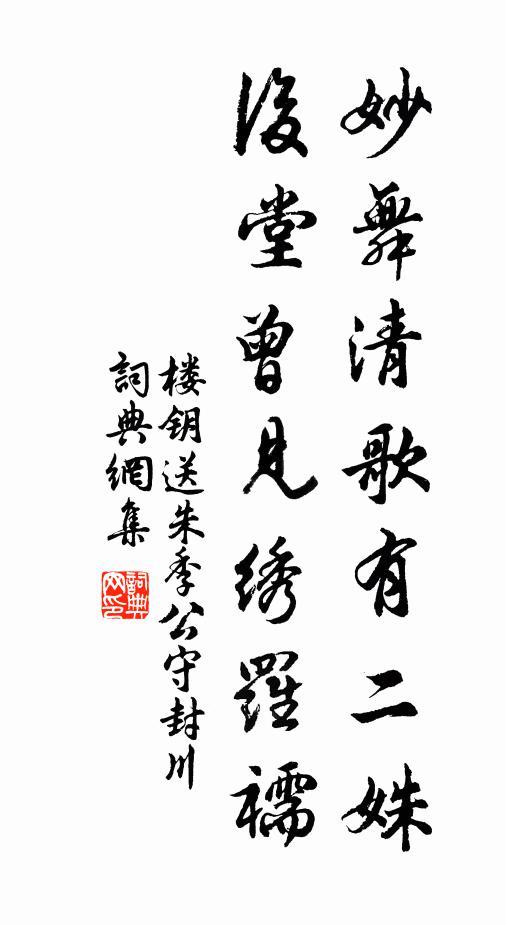 妙舞清歌有二姝
後堂曾见绣羅襦
楼钥送朱季公守封川
詞典網集
詞典网印